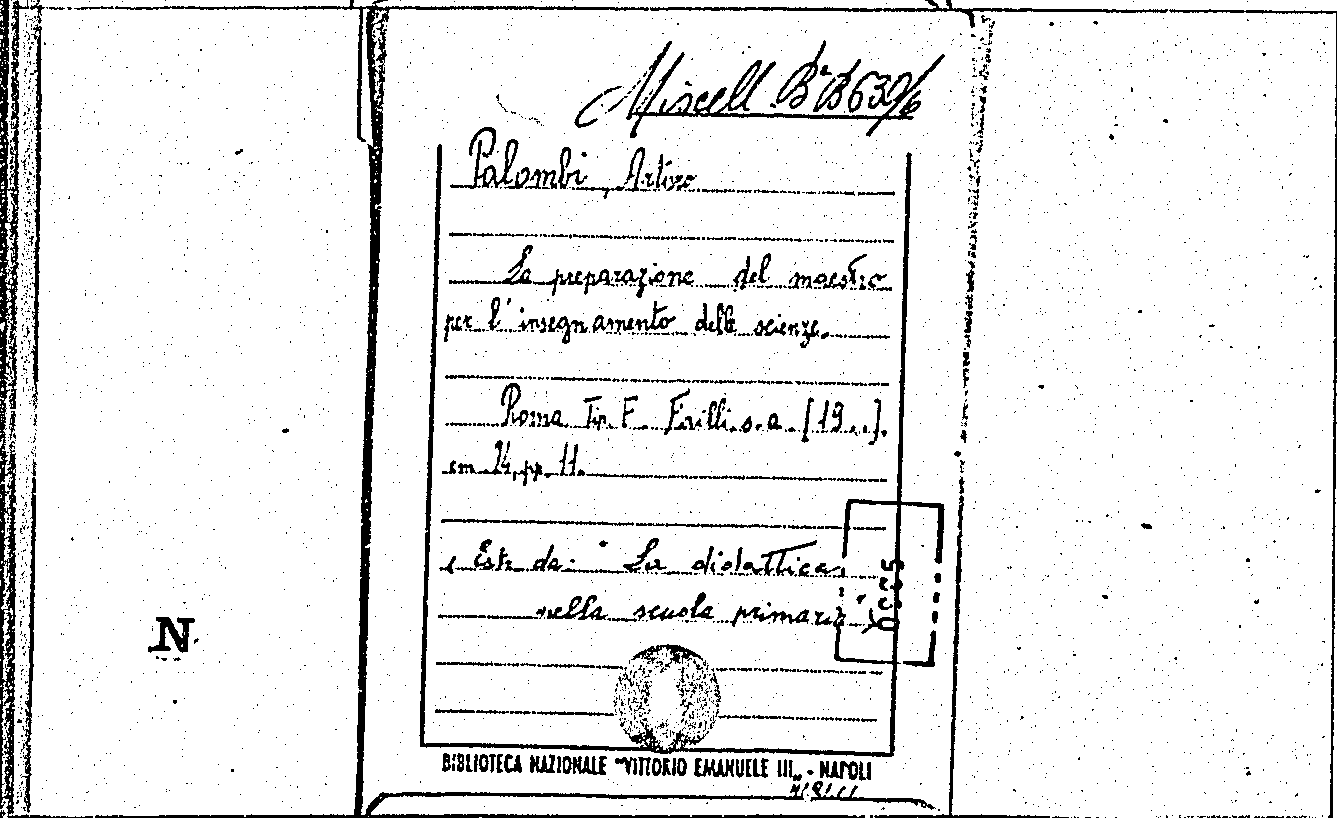 Miscell Bª B 630/6
Palombi, Arturo
La preparazione del maestro
per l'insegnamento delle scienze.
Roma Tip. F. s.a. [19..].
cm. 24, pp. 11.
Estr. da: "La didattica
nella scuola primaria"
N
BIBLIOTECA NAZIONALE "VITTORIO EMANUELE III" - NAPOLI